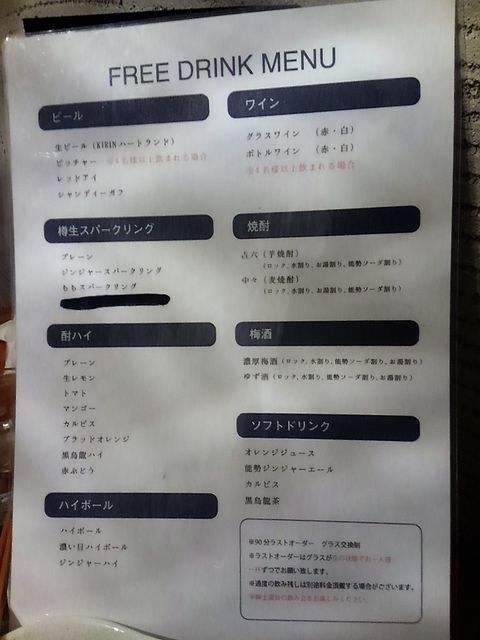 FREE DRINK MENU
ビール
生ビール（KIRINハートランド）
ピッチャー ※4名様以上飲まれる場合
レッドアイ
シャンディーガフ
樽生スパークリング
プレーン
ジンジャースパークリング
ももスパークリング
酎ハイ
プレーン
生レモン
トマト
マンゴー
カルピス
ブラッドオレンジ
黒烏龍ハイ
赤ぶどう
ハイボール
ハイボール
濃い目ハイボール
ジンジャーハイ
ワイン
グラスワイン （赤・白）
ボトルワイン （赤・白）
※4名様以上飲まれる場合
焼酎
吉六（芋焼酎）
（ロック、水割り、お湯割り、能勢ソーダ割り）
中々（麦焼酎）
（ロック、水割り、お湯割り、能勢ソーダ割り）
梅酒
濃厚梅酒（ロック、水割り、能勢ソーダ割り、お湯割り）
ゆず酒（ロック、水割り、能勢ソーダ割り、お湯割り）
ソフトドリンク
オレンジジュース
能勢ジンジャーエール
カルピス
黒烏龍茶
※90分ラストオーダー グラス交換制
※ラストオーダーはグラスが空の状態でお一人様
一杯ずつでお願い致します。
※過度の飲み残しは別途料金頂戴する場合がございます。
※紳士淑女の飲み会をお楽しみください。